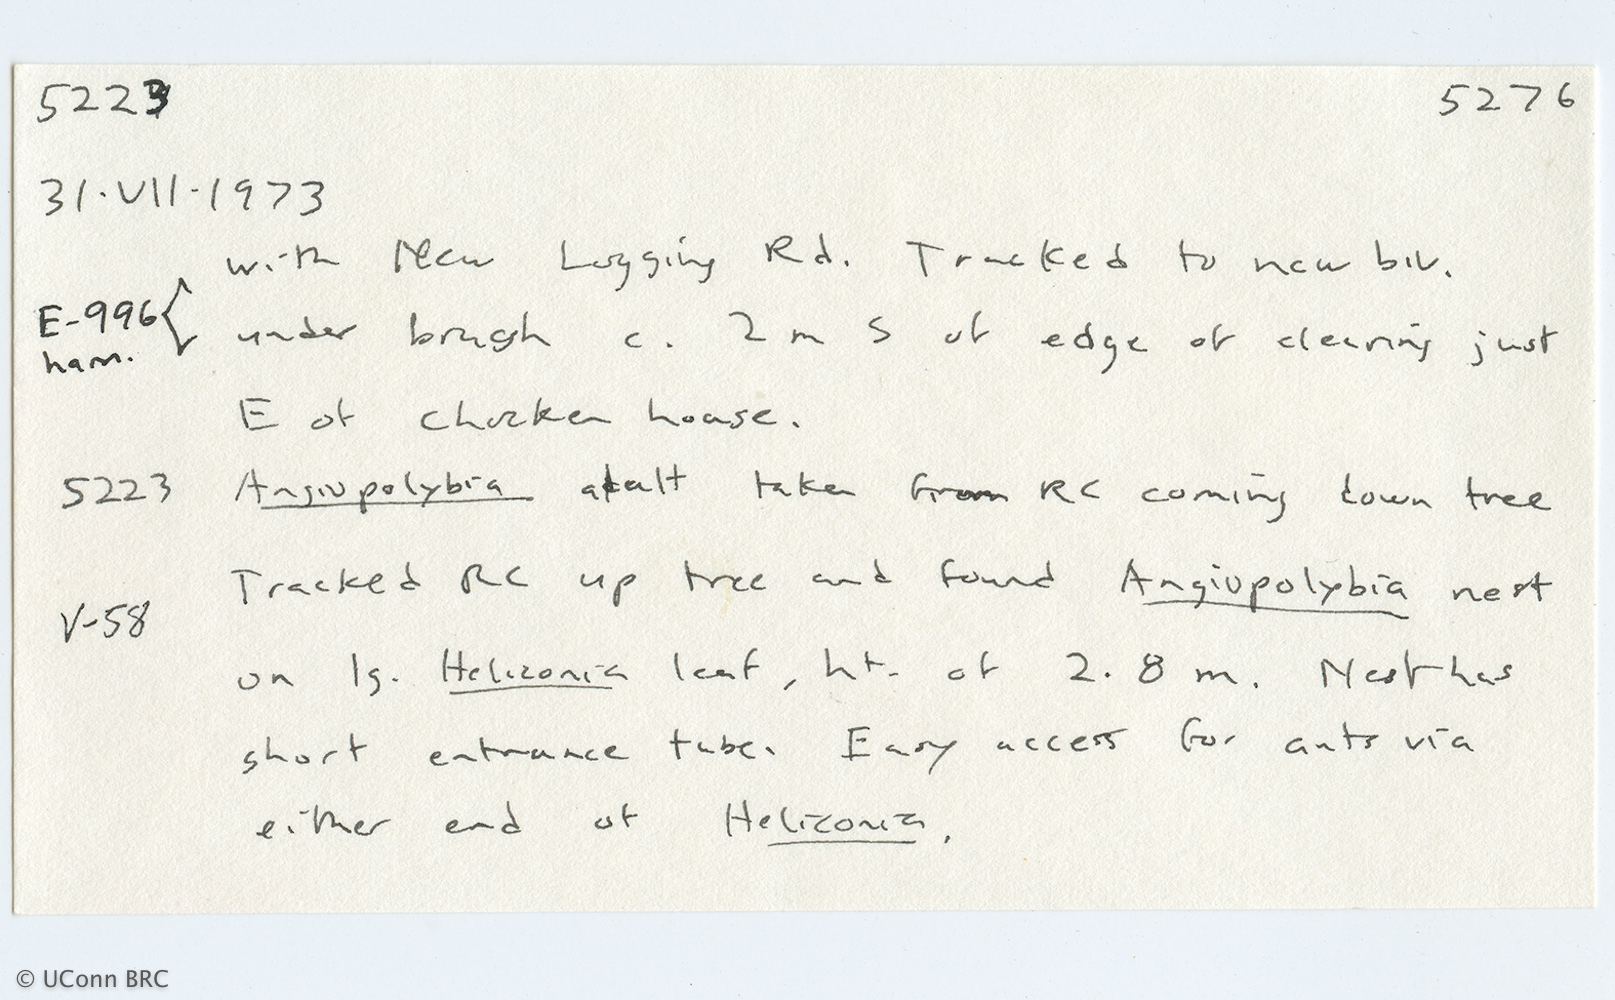 5223 5276
31·VII·1973
with New Logging Rd. Tracked to new biv.
E-996 ham. under brush c. 2 m S of edge of clearing just
E of chicken house.
5223 Angiopolybia adult taken from RC coming down tree
Tracked RC up tree and found Angiopolybia nest
V-58
on lg. Heliconia leaf, ht. of 2.8 m. Nest has
short entrance tube. Easy access for ants via
either end of Heliconia.
© UConn BRC